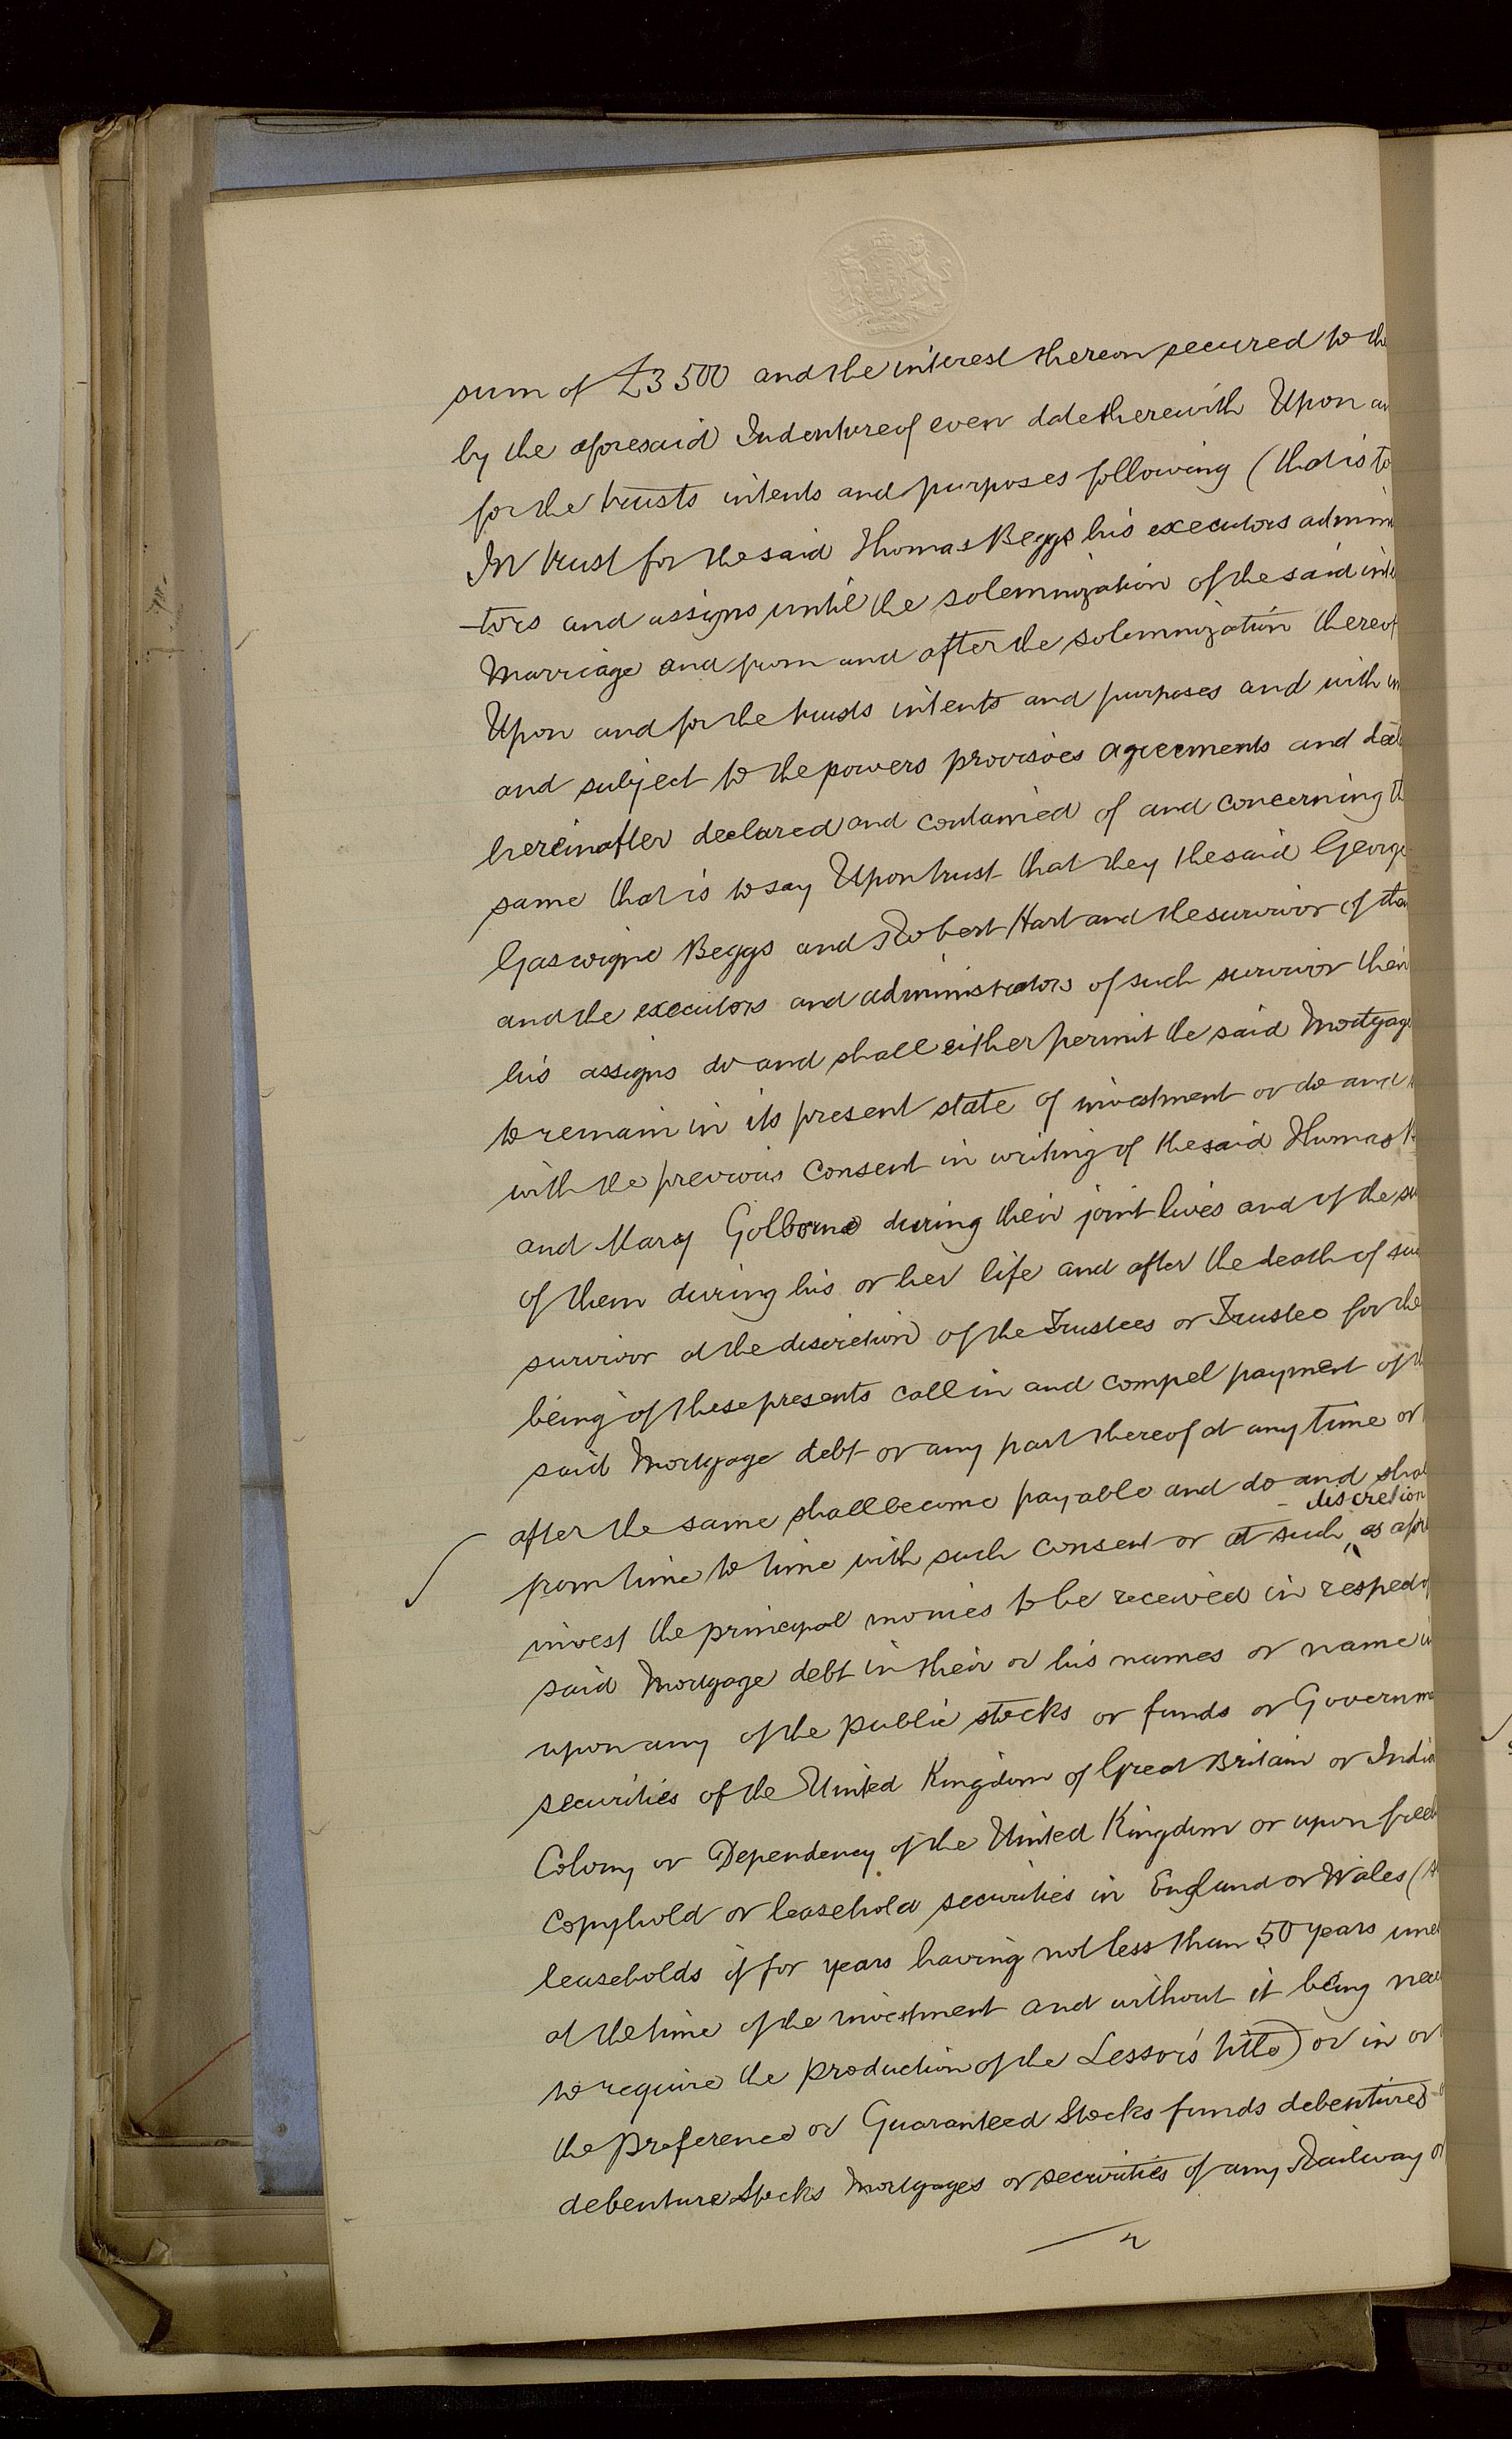 sum of £3500 and the interest thereon secured to the
by the aforesaid Indenture of even date therewith Upon an
for the trusts intents and purposes following (that is to
In trust for the said Thomas Beggs his executors admini
-tors and assigns until the solemnization of the said inte
Marriage and from and after the solemnization thereof
Upon and for the trusts intents and purposes and with
and subject to the powers provisoes agreements and decl
hereinafter declared and contained of and concerning th
same that is to say Upon trust that they the said George
Gascoigne Beggs and Robert Hart and the survivor of the
and the executors and administrators of such survivor their
his assigns do and shall either permit the said Mortgage
to remain in its present state of investment or do and
with the previous consent in writing of the said Thomas
and Mary Golborne during their joint lives and of the su
of them during his or her life and after the death of suc
survivor at the discretion of the Trustees or Trustee for the
being of these presents call in and compel payment of th
said Mortgage debt or any part thereof at any time or
after the same shall become payable and do and shal
from time to time with such consent or at such discretion as afore
invest the principal monies to be received in respect of
said Mortgage debt in their or his names or name in
upon any of the public stocks or funds or Governme
securities of the United Kingdom of Great Britain or India
Colony or Dependency of the United Kingdom or upon freeh
copyhold or leasehold securities in England or Wales (
leaseholds if for years having not less than 50 years unex
at the time of the investment and without it being nece
to require the production of the Lessor's title) or in or
the preference or Guaranteed Stocks funds debentures
debenture Stocks Mortgages or securities of any Railway or